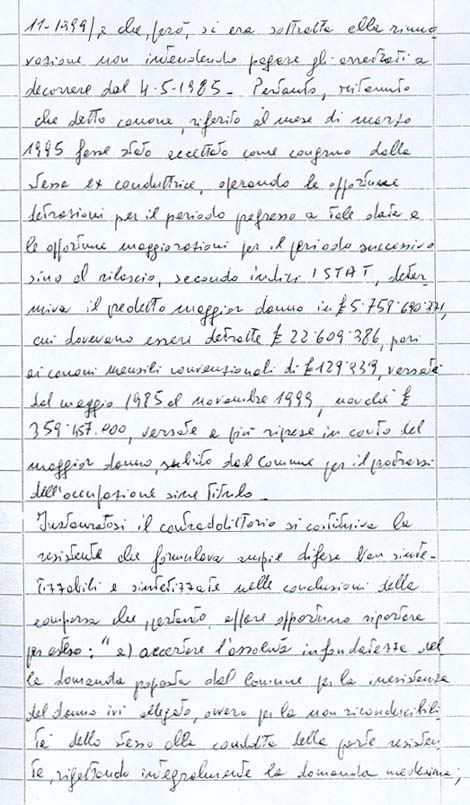 11-1999/, e che, però, si era sottratta alla rinno
vazione non intendendo pagare gli arretrati a
decorrere dal 4-5-1985 - Pertanto, ritenuto
che detto canone, riferito al mese di marzo
1995 fosse stato accettato come congruo dalla
stessa ex conduttrice, operando le opportune
detrazioni per il periodo pregresso a tale data e
le opportune maggiorazioni per il periodo successivo
sino al rilascio, secondo indici ISTAT, deter-
minava il predetto maggior danno in £ 5.759.690.271,
cui dovevano essere detratte £ 22.609.386, pari
ai canoni mensili convenzionali di £ 129.939, versate
dal maggio 1985 al novembre 1999, nonché £
359.457.000, versate a più riprese in conto del
maggior danno, subito dal Comune per il protrarsi
dell'occupazione sine titulo -
Instauratosi il contraddittorio si costituiva la
resistente che formulava ampie difese ben sinte-
tizzabili e sintetizzate nelle conclusioni della
comparsa che, pertanto, appare opportuno riportare
per esteso: " a) accertare l'assoluta infondatezza del
la domanda proposta dal Comune per la inesistenza
del danno ivi allegato, ovvero per la non riconducibili
tà dello stesso alla condotta della parte resisten
te, rigettando integralmente la domanda medesima;